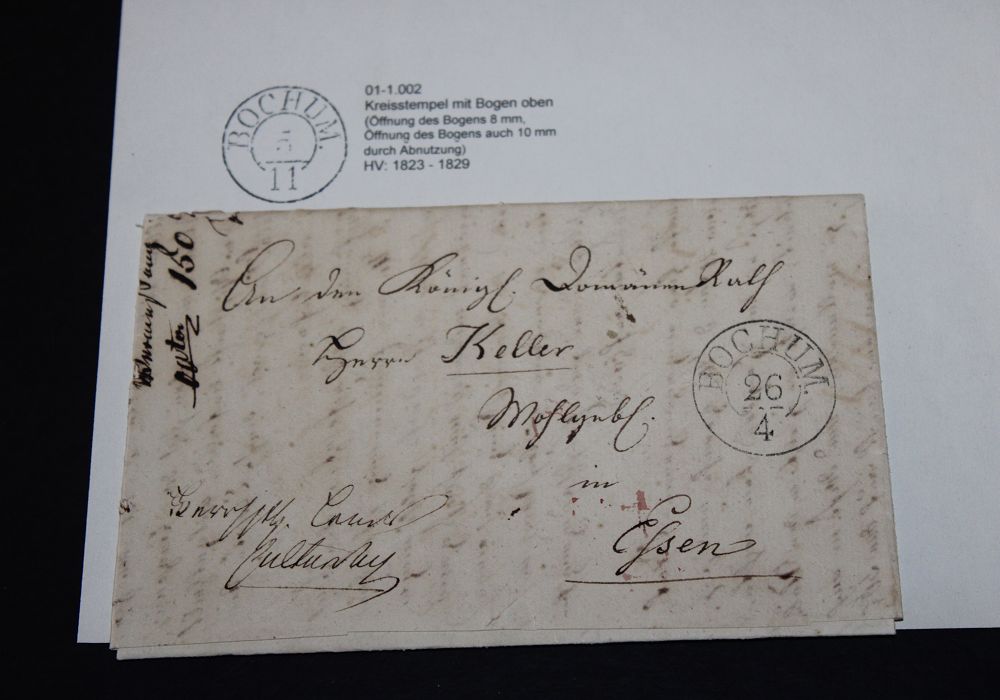 BOCHUM.
5
11
01-1.002
Kreisstempel mit Bogen oben
(Öffnung des Bogens 8 mm,
Öffnung des Bogens auch 10 mm
durch Abnutzung)
HV: 1823 - 1829
150
An den Königl. Domänen Rath
Herrn Keller
Wohlgeb.
in
Essen
BOCHUM.
26
4